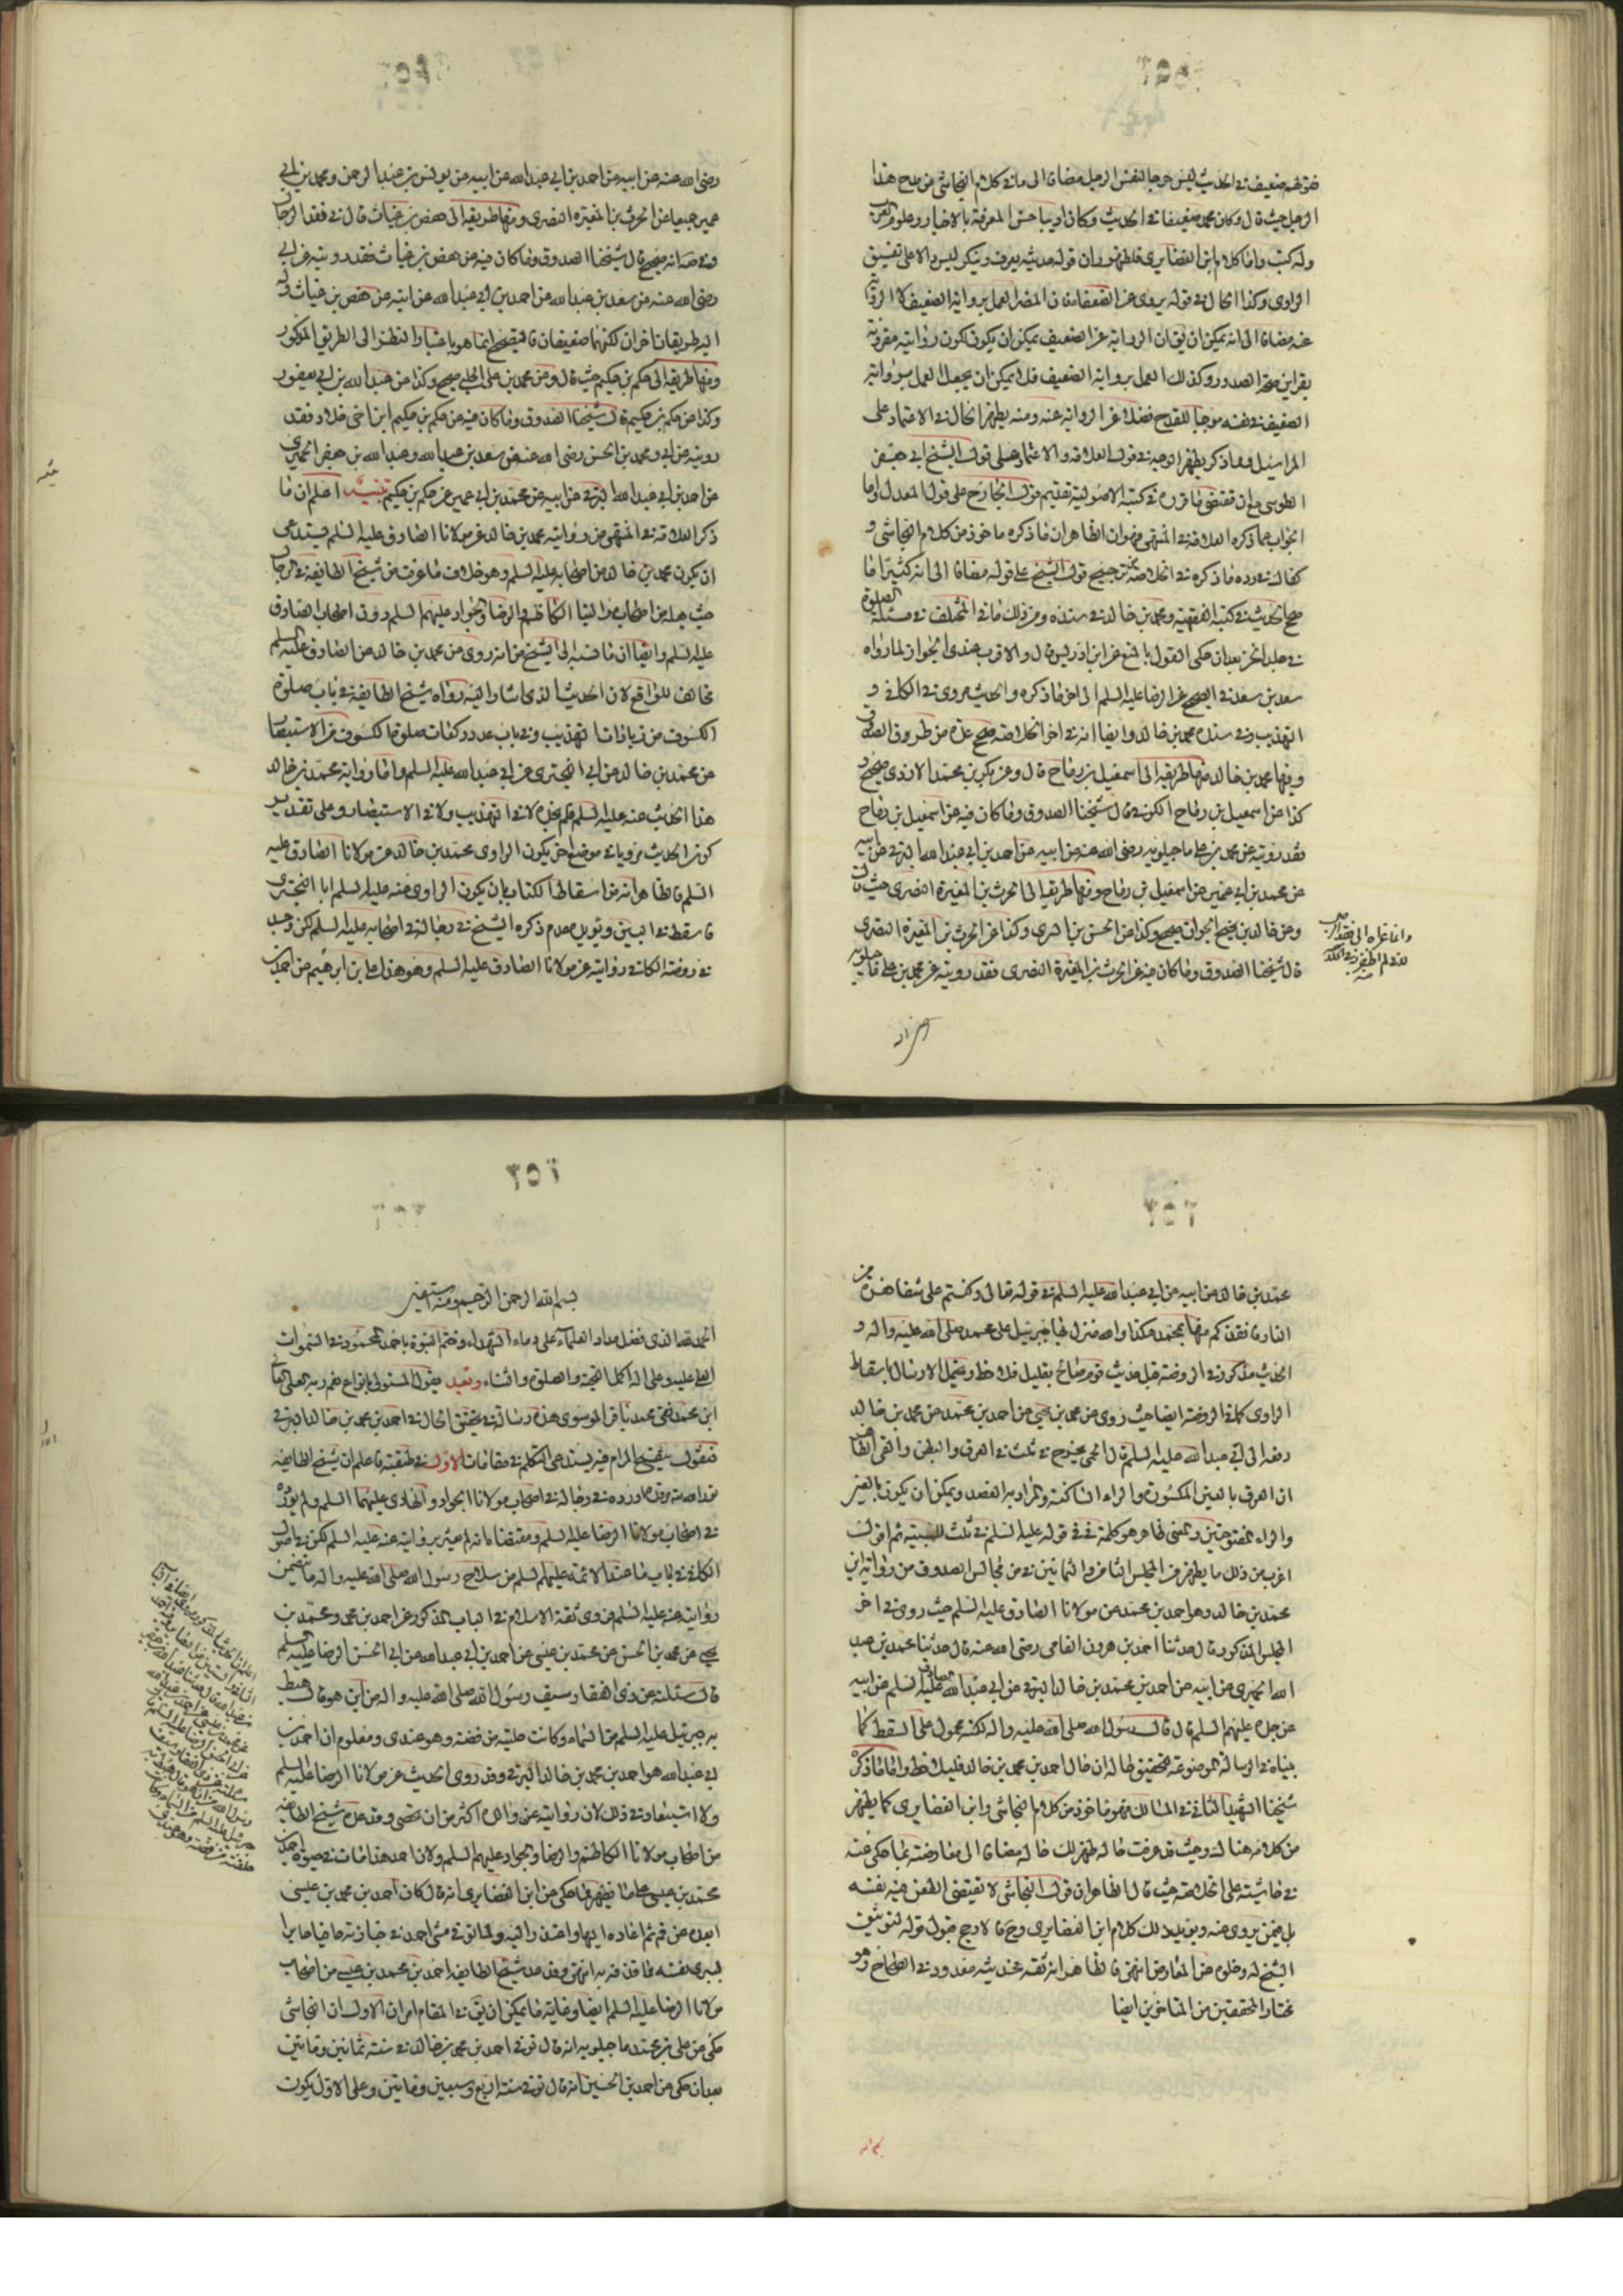 فقوله ضعيف في الحديث ليس جرحا لنفس الرجل مضافا الى ما في كلام النجاشي من مدح هذا
الرجل حيث قال وكان محمد ضعيفا في الحديث وكان اديبا حسن المعرفة بالاخبار وعلوم العرب
وله كتب واما كلام ابن الغضايري فلظهور ان قوله حديثه يعرف وينكر ليس دالا على تفسيق
الراوي وكذا الحال في قوله يروي عن الضعفاء فان المضر العمل برواية الضعيف لا الرواية
عنه مضافا الى انه يمكن ان يق ان الرواية عن الضعيف يمكن ان يكون لكون روايته مقرونة
بقراين صحة الصدور وكذلك العمل برواية الضعيف فلا يمكن ان يجعل العمل برواية
الضعيف في نفسه موجبا للقدح فضلا عن الرواية عنه ومنه يظهر الحال في الاعتماد على
المراسيل ومما ذكر يظهر الوجه في قول العلامة والاعتماد على قول الشيخ ابي جعفر
الطوسي مع ان مقتضى ما قرره في كتبه الاصولية تقديم قول الجارح على قول المعدل واما
الجواب عما ذكره العلامة في المنتهى فهو ان الظاهر ان ما ذكره ماخوذ من كلام النجاشي و
كفاك في رده ما ذكره في الخلاصة من ترجيح قول الشيخ على قوله مضافا الى انه كثيرا ما
صحح الحديث في كتبه الفقهية ومحمد بن خالد في سنده ومن ذلك ما في المختلف في مسئلة الصلوة
في جلد الخز بعد ان حكى القول بالمنع عن ابن ادريس قال والاقرب عندي الجواز لما رواه
سعد بن سعد في الصحيح عن الرضا عليه السلم الى اخر ما ذكره والحديث مروي في الكافي و
التهذيب وفي سنده محمد بن خالد وايضا انه في اخر الخلاصة صحح عدة من طرق الصدوق
وفيها محمد بن خالد منها طريقه الى اسمعيل بن رباح قال وعن بكر بن محمد الازدي صحيح و
كذا عن اسمعيل بن رباح الكوفي قال شيخنا الصدوق وما كان فيه عن اسمعيل بن رباح
فقد رويته عن محمد بن علي ماجيلويه رضي الله عنه عن ابيه عن احمد بن ابي عبد الله البرقي عن ابيه
عن محمد بن ابي عمير عن اسمعيل بن رباح ومنها طريقه الى الحرث بن المغيرة النصري حيث قال
وعن خالد بن نجيح الجوان صحيح وكذا عن الحسن بن السري وكذا عن الحرث بن المغيرة النصري
قال شيخنا الصدوق وما كان فيه عن الحرث بن المغيرة النصري فقد رويته عن محمد بن علي ماجيلويه
رضي الله عنه عن ابيه عن احمد بن ابي عبد الله عن ابيه عن يونس بن عبد الرحمن ومحمد بن ابي
عمير جميعا عن الحرث بن المغيرة النصري ومنها طريقه الى حفص بن غياث قال في نقد الرجال
وفي صه انه صحيح قال شيخنا الصدوق وما كان فيه عن حفص بن غياث فقد رويته عن ابي
رضي الله عنه عن سعد بن عبد الله عن احمد بن ابي عبد الله عن ابيه عن حفص بن غياث وله
اليه طريقان اخران لكنهما ضعيفان فالتصحيح انما هو باعتبار النظر الى الطريق المذكور
ومنها طريقه الى حكم بن حكيم حيث قال وعن محمد بن علي الحلبي صحيح وكذا عن عبد الله بن ابي يعفور
وكذا عن حكم بن حكيم قال شيخنا الصدوق وما كان فيه عن حكم بن حكيم ابن اخي خلاد فقد
رويته عن ابي ومحمد بن الحسن رضي الله عنه عن سعد بن عبد الله وعبد الله بن جعفر الحميري
عن احمد بن ابي عبد الله البرقي عن ابيه عن محمد بن ابي عمير عن حكم بن حكيم تنبيه اعلم ان ما
ذكر العلامة في المنتهى من رواية محمد بن خالد عن مولانا الصادق عليه السلم يستدعي
ان يكون محمد بن خالد من اصحابه عليه السلم وهو خلاف ما عرفت من شيخ الطايفة في الرجال
حيث جعله من اصحاب موالينا الكاظم والرضا والجواد عليهم السلم دون اصحاب الصادق
عليه السلم وايضا ان ما نسبه الى الشيخ من انه روى عن محمد بن خالد عن الصادق عليه السلم
مخالف للواقع لان الحديث الذي اشار اليه رواه شيخ الطايفة في باب صلوة
الكسوف من زيادات التهذيب وفي باب عدد ركعات صلوة الكسوف من الاستبصار
عن محمد بن خالد عن ابي البختري عن ابي عبد الله عليه السلم واما رواية محمد بن خالد
هذا الحديث عنه عليه السلم فلم نجده لا في التهذيب ولا في الاستبصار وعلى تقدير
كون الحديث مرويا في موضع اخر يكون الراوي محمد بن خالد عن مولانا الصادق عليه
السلم فالظاهر انه من اسقاط الكتاب بان يكون الراوي عنه عليه السلم ابا البختري
فاسقط في البين ويؤيده عدم ذكره الشيخ في رجاله في اصحابه عليه السلم لكن وجد
في روضة الكافي روايته عن مولانا الصادق عليه السلم وهو هذا علي بن ابرهيم عن احمد بن
٢٥٦
محمد بن خالد عن ابيه عن ابي عبد الله عليه السلم في قوله تعالى وكنتم على شفا حفرة من
النار فانقذكم منها بمحمد هكذا والله نزل بها جبرئيل على محمد صلى الله عليه واله و
الحديث مذكور في الروضة قبل حديث قوم صالح بقليل فلاحظ ويحتمل الارسال باسقاط
الراوي كما في الروضة ايضا حيث روى عن محمد بن يحيى عن احمد بن محمد عن محمد بن خالد
رفعه الى ابي عبد الله عليه السلم قال الحمى يخرج في ثلث في العرق والبطن والقي الظاهر
ان العرق بالعين المكسورة والراء الساكنة والمراد به الفصد ويمكن ان يكون بالعين
والراء المفتوحتين والمعنى ظاهر وكلمة في في قوله عليه السلم في ثلث للسببية ثم اقول
اغرب من ذلك ما يظهر من المجلس الثامن والثمانين من مجالس الصدوق من رواية ابن
محمد بن خالد وهو احمد بن محمد عن مولانا الصادق عليه السلم حيث روى في اخر
المجلس المذكور قال حدثنا احمد بن هرون الفامي رضي الله عنه قال حدثنا محمد بن عبد
الله الحميري عن ابيه عن احمد بن محمد بن خالد البرقي عن ابي عبد الله الصادق عليه السلم عن ابيه
عن جده عليهم السلم قال قال رسول الله صلى الله عليه واله لكنه محمول على السقط كما
بيناه في الرسالة الموضوعة لتحقيق حال احمد بن محمد بن خالد فليلاحظ واما ما ذكره
شيخنا الشهيد الثاني في المسالك فهو ماخوذ من كلام النجاشي وابن الغضايري كما يظهر
من كلامه هناك وحيث قد عرفت حاله ظهر لك حاله مضافا الى معارضته بما حكي عنه
في حاشيته على الخلاصة حيث قال الظاهر ان قول النجاشي لا يقتضي الطعن فيه نفسه
بل فيمن يروي عنه ويؤيد ذلك كلام ابن الغضايري وح فالارجح قبول قوله لتوثيق
الشيخ له وخلوه عن المعارض انتهى فالظاهر انه ثقة فحديثه معدود في الصحاح وهو
مختار المحققين من المتاخرين ايضا
٢٥٦
بسم الله الرحمن الرحيم ومنه استعين
الحمد لله الذي فضل مداد العلماء على دماء الشهداء وختم النبوة باحمد المحمود في السموات
العلى عليه وعلى اله اكمل التحية والصلوة والثناء وبعد فيقول المتوسل بانواع نعم ربه
ابن محمد نقي محمد باقر الموسوي هذه رسالة في تحقيق الحال في احمد بن محمد بن خالد البرقي
فنقول تنقيح المرام فيه يستدعي التكلم في مقامات الاول في طبقته فاعلم ان شيخ الطايفة
قد اورده في رجاله في اصحاب مولانا الجواد والهادي عليهما السلم ولم يورده
في اصحاب مولانا الرضا عليه السلم ومقتضاه انه لم يعثر بروايته عنه عليه السلم لكن في اصول
الكافي في باب ما عند الائمة عليهم السلم من سلاح رسول الله صلى الله عليه واله ما يتضمن
روايته عنه عليه السلم فروى ثقة الاسلام في الباب المذكور عن احمد بن محمد ومحمد بن
يحيى عن محمد بن الحسن عن محمد بن عيسى عن احمد بن ابي عبد الله عن ابي الحسن الرضا عليه السلم
قال سئلته عن ذي الفقار سيف رسول الله صلى الله عليه واله من اين هو قال هبط
به جبرئيل عليه السلم من السماء وكانت حليته من فضة وهو عندي ومعلوم ان احمد بن
ابي عبد الله هو احمد بن محمد بن خالد البرقي وقد روى الحديث عن مولانا الرضا عليه السلم
ولا استبعاد في ذلك لان روايته عن والده اكثر من ان تحصى وقد عده شيخ الطايفة
من اصحاب مولانا الكاظم والرضا والجواد عليهم السلم ولان احمد هذا مات في حيوة احمد بن
محمد بن عيسى على ما يظهر مما حكي عن ابن الغضايري انه قال كان احمد بن محمد بن عيسى
ابعده عن قم ثم اعاده اليها واعتذر اليه ولما توفي مشى احمد في جنازته حافيا حاسرا
ليبرئ نفسه مما قذفه به انتهى وقد عد شيخ الطايفة احمد بن محمد بن عيسى من اصحاب
مولانا الرضا عليه السلم ايضا وغاية ما يمكن ان يق في المقام امران الاول ان النجاشي
حكى عن علي بن محمد ماجيلويه انه قال توفي احمد بن محمد بن خالد في سنة ثمانين وماتين
بعد ان حكى عن احمد بن الحسين انه قال توفي سنة اربع وسبعين وماتين وعلى الاول يكون